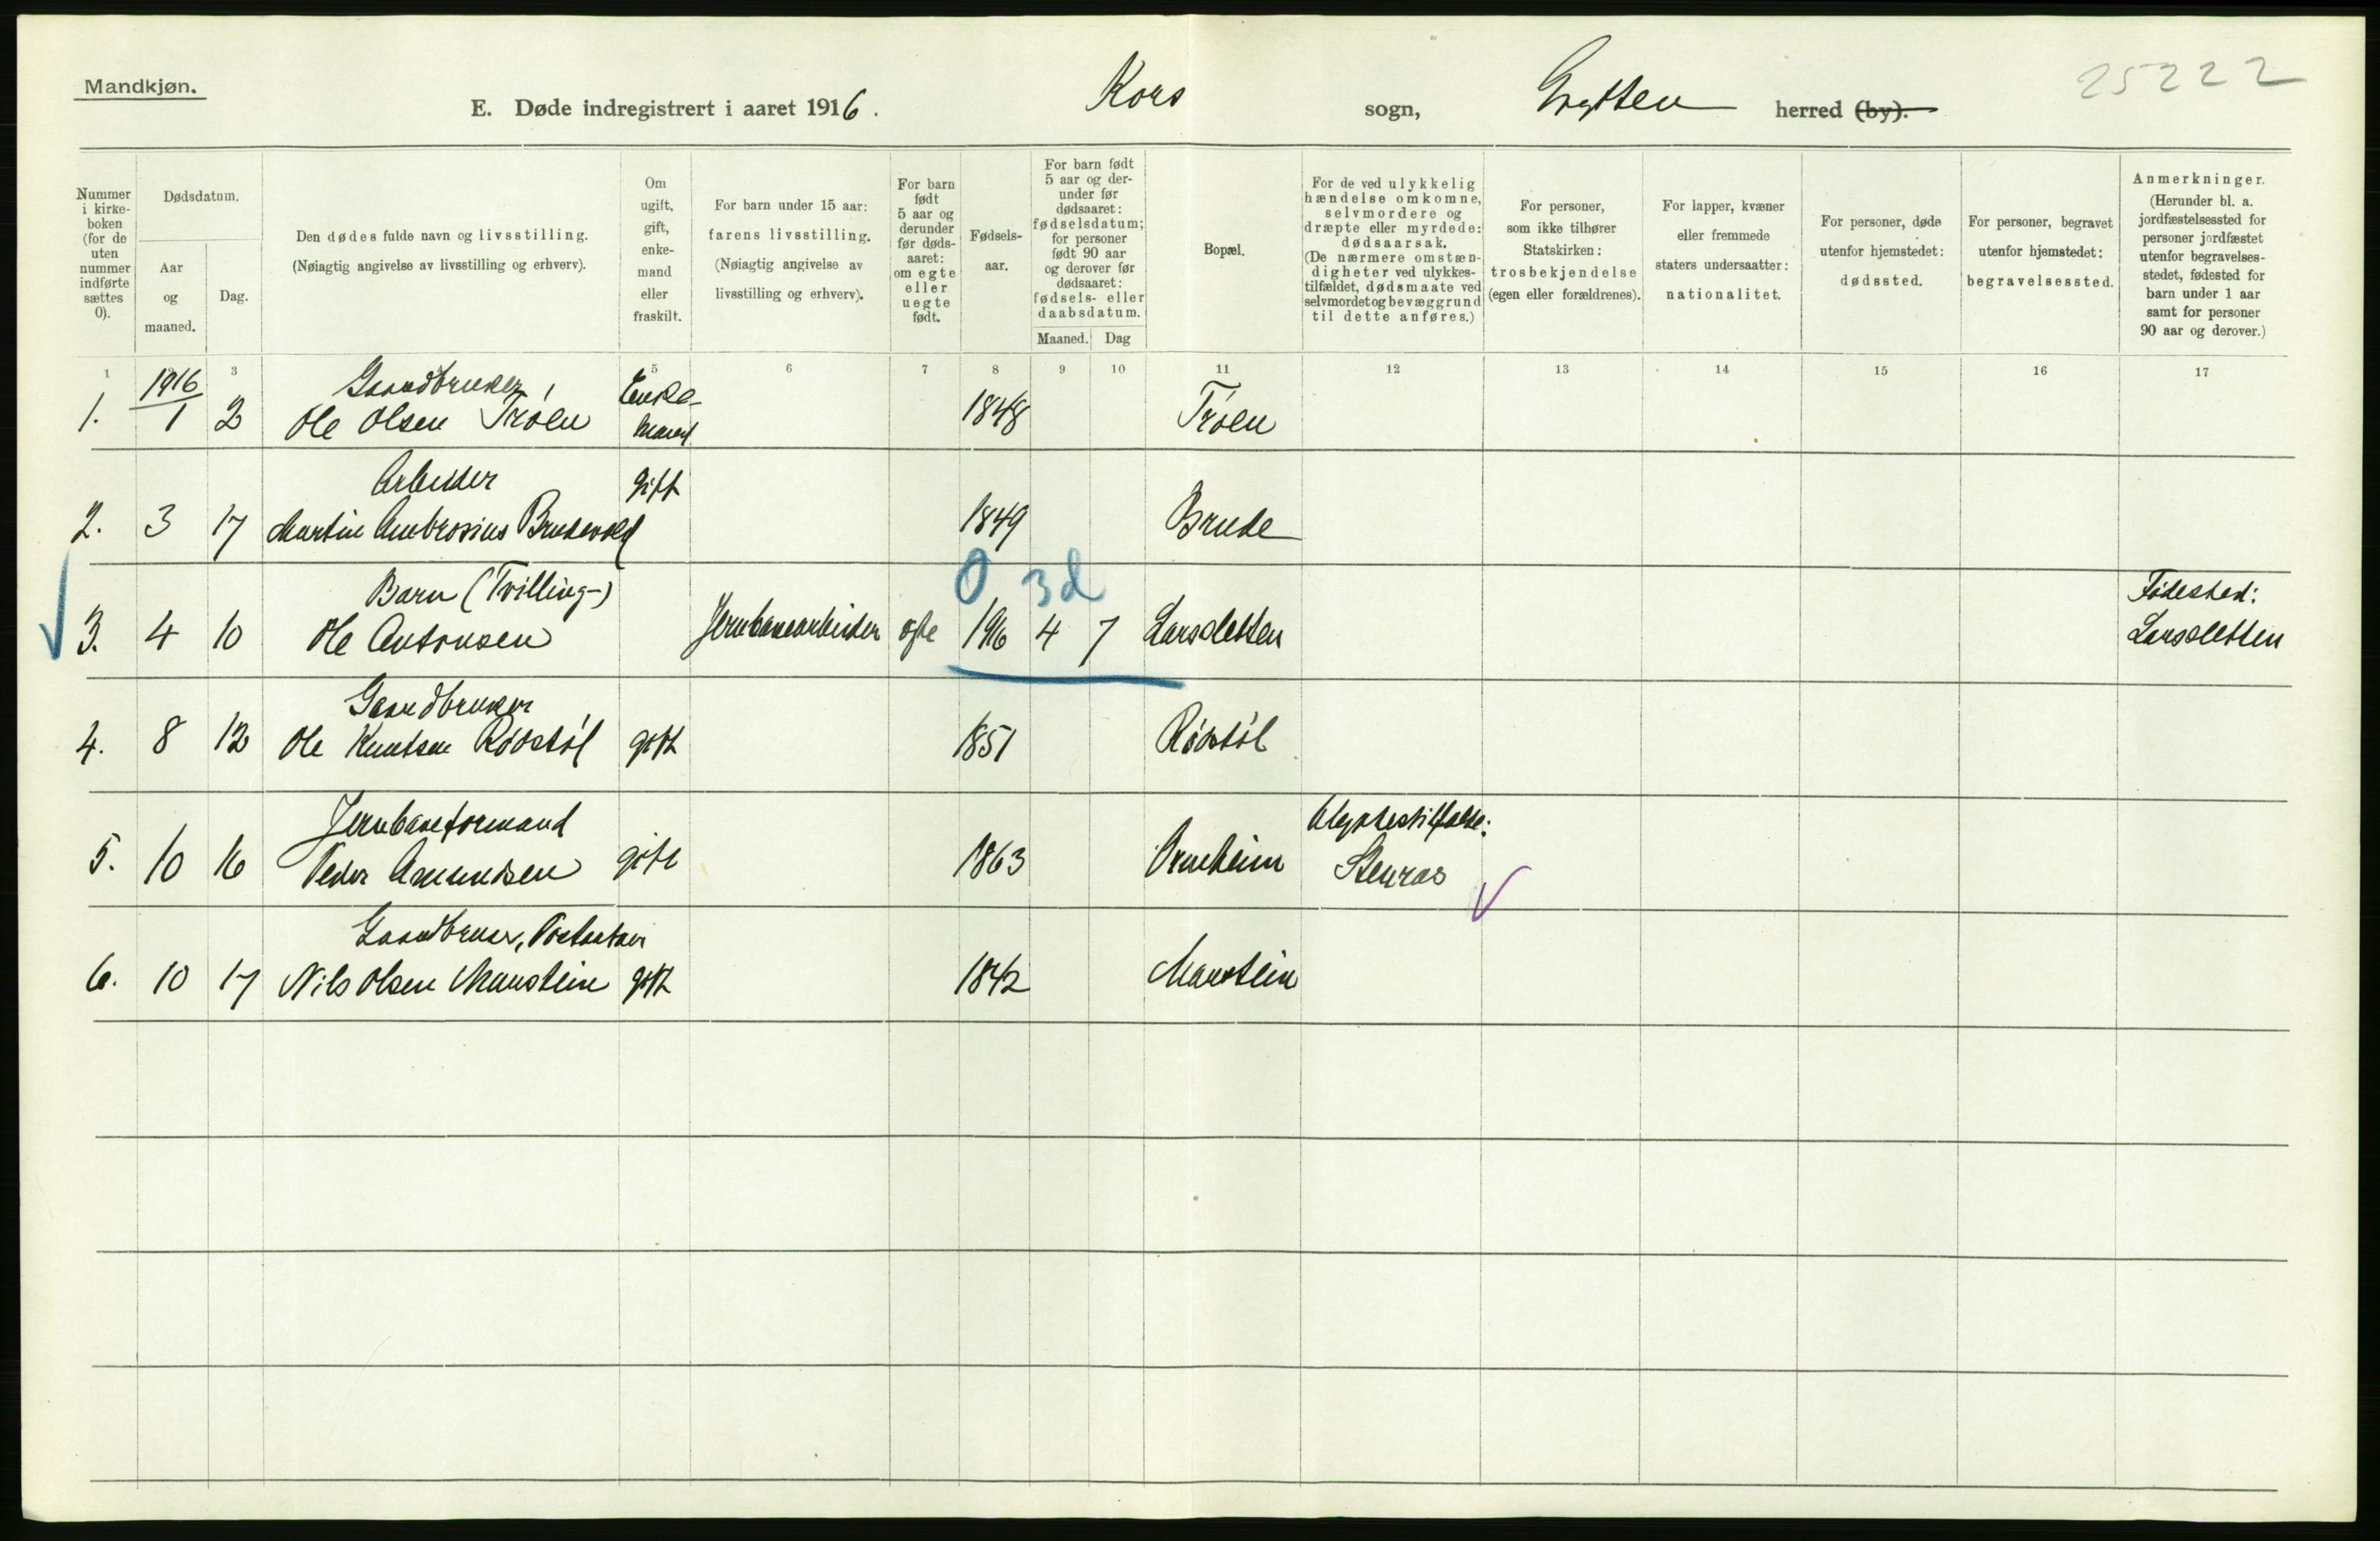 Mandkjøn.
25222
E. Døde indregistrert i aaret 1916. Kors sogn, Grytten herred (by).
Nummer i kirke- boken (for de uten nummer indførte sættes 0).
Dødsdatum.
Aar og maaned.
Dag.
Den dødes fulde navn og livsstilling.
(Nøiagtig angivelse av livsstilling og erhverv).
Om ugift, gift, enke- mand eller fraskilt.
For barn under 15 aar: farens livsstilling.
(Nøiagtig angivelse av livsstilling og erhverv).
For barn født 5 aar og derunder før døds- aaret: om egte eller uegte født.
Fødsels- aar.
For barn født 5 aar og der- under før dødsaaret: fødselsdatum; for personer født 90 aar og derover før dødsaaret: fødsels- eller daabsdatum.
Maaned. Dag
Bopæl.
For de ved ulykkelig hændelse omkomne, selvmordere og dræpte eller myrdede: dødsaarsak.
(De nærmere omstæn- digheter ved ulykkes- tilfældet, dødsmaate ved selvmordet og bevæggrund til dette anføres.)
For personer, som ikke tilhører Statskirken: trosbekjendelse (egen eller forældrenes).
For lapper, kvæner eller fremmede staters undersaatter: nationalitet.
For personer, døde utenfor hjemstedet: dødssted.
For personer, begravet utenfor hjemstedet: begravelsessted.
Anmerkninger.
(Herunder bl. a. jordfæstelsessted for personer jordfæstet utenfor begravelses- stedet, fødested for barn under 1 aar samt for personer 90 aar og derover.)
1 3 5 6 7 8 9 10 11 12 13 14 15 16 17
1916 Gaardbruker, Enke-
1. 1 2 Ole Olsen Trøen mand 1848 Trøen
Arbeider gift
2. 3 17 Martin Ambrosius Brudevold 1849 Brude
0 3d
Barn (Tvilling-) Fødested:
3. 4 10 Ole Antonsen Jernbanearbeider egte 1916 4 7 Larsletten Larsletten
Gaardbruker
4. 8 12 Ole Knutsen Rødstøl gift 1851 Rødstøl
Jernbaneformand Ulykkestilfælde:
5. 10 16 Peder Amundsen gift 1863 Ormheim Stenras
Gaardbruker,
6. 10 17 Nils Olsen Marstein gift 1842 Marstein